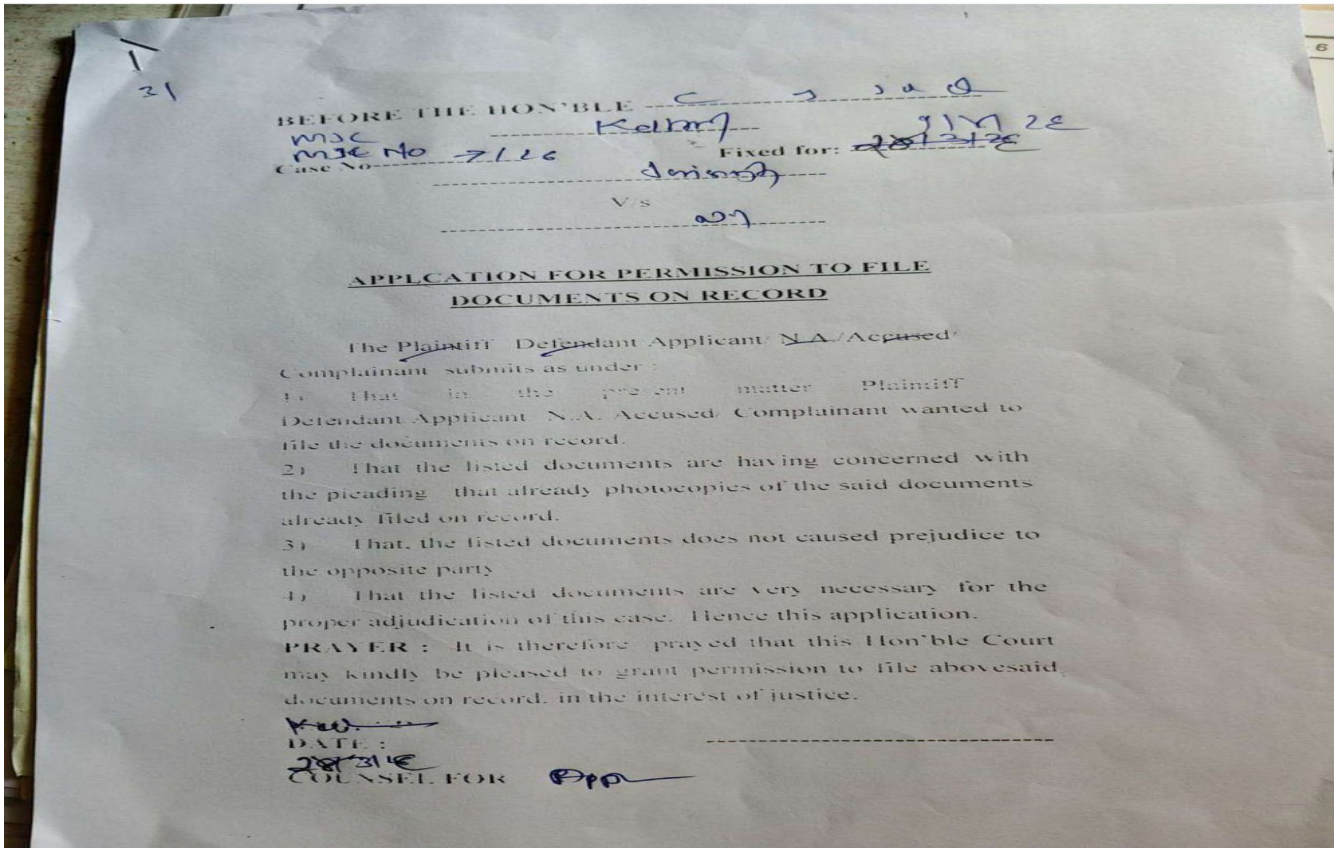 3/
BEFORE THE HON'BLE
MJC
MJC No 7/26 Fixed for:
Case No
V/s
APPLCATION FOR PERMISSION TO FILE
DOCUMENTS ON RECORD
The Plaintiff Defendant Applicant/ N.A./Accused/
Complainant submits as under :
1) That in the present matter Plaintiff
Defendant Applicant N.A. Accused/ Complainant wanted to
file the documents on record.
2) That the listed documents are having concerned with
the pleading that already photocopies of the said documents
already filed on record.
3) That, the listed documents does not caused prejudice to
the opposite party
4) That the listed documents are very necessary for the
proper adjudication of this case. Hence this application.
PRAYER : It is therefore prayed that this Hon'ble Court
may kindly be pleased to grant permission to file abovesaid
documents on record, in the interest of justice.
DATE :
COUNSEL FOR App
6